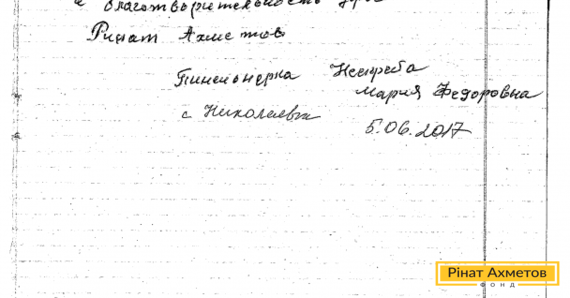 и благотворительность
Ринат Ахметов
Пинсионерка Нестреба
Мария Федоровна
с Николаевка
5.06.2017
Рінат Ахметов
ФОНД